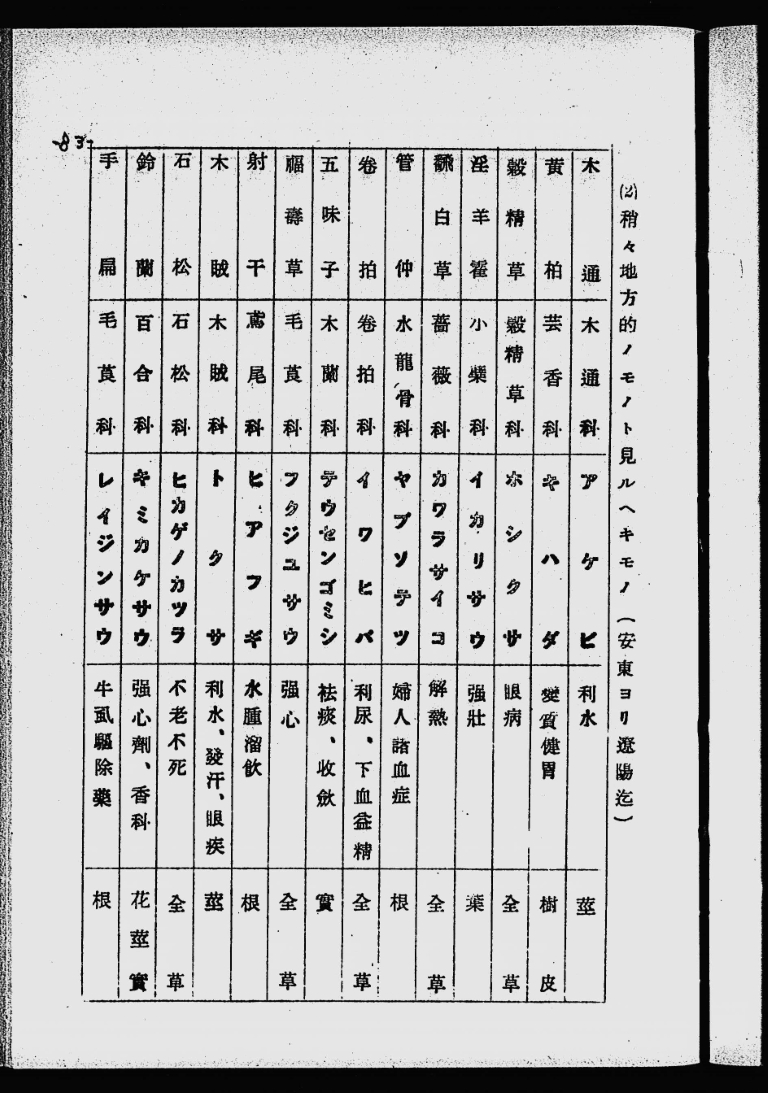 (2)稍々地方的ノモノト見ルヘキモノ(安東ヨリ遼陽迄)
木通 木通科 アケビ 利水 莖
黄柏 芸香科 キハダ 變質健胃 樹皮
穀精草 穀精草科 ホシクサ 眼病 全草
淫羊霍 小蘗科 イカリサウ 强壯 葉
飜白草 薔薇科 カワラサイコ 解熱 全草
管仲 水龍骨科 ヤブソテツ 婦人諸血症 根
卷拍 卷拍科 イワヒバ 利尿、下血益精 全草
五味子 木蘭科 テウセンゴミシ 祛痰、收斂 實
福壽草 毛茛科 フクジユサウ 强心 全草
射干 鳶尾科 ヒアフギ 水腫溜飮 根
木賊 木賊科 トクサ 利水、發汗、眼疾 莖
石松 石松科 ヒカゲノカツラ 不老不死 全草
鈴蘭 百合科 キミカケサウ 强心劑、香科 花莖實
手扁 毛茛科 レイジンサウ 牛虱驅除藥 根
-83-